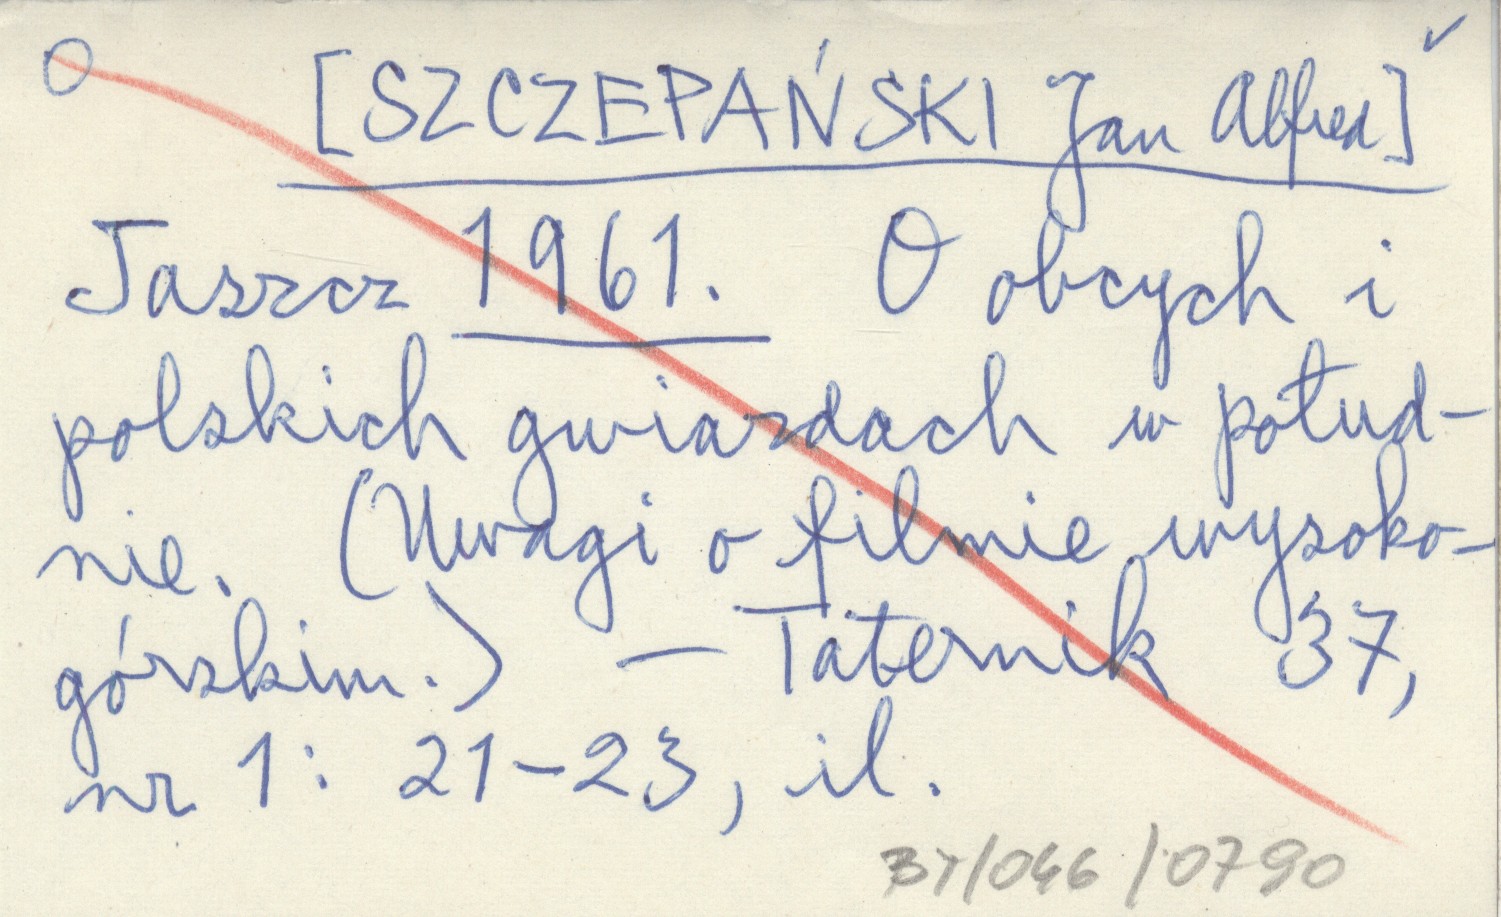 O [SZCZEPAŃSKI Jan Alfred] ✓
Jaszcz 1961. O obcych i
polskich gwiazdach w połud-
nie. (Uwagi o filmie wysoko-
górskim.) — Taternik 37,
nr 1: 21-23, il.
BT/046/0790